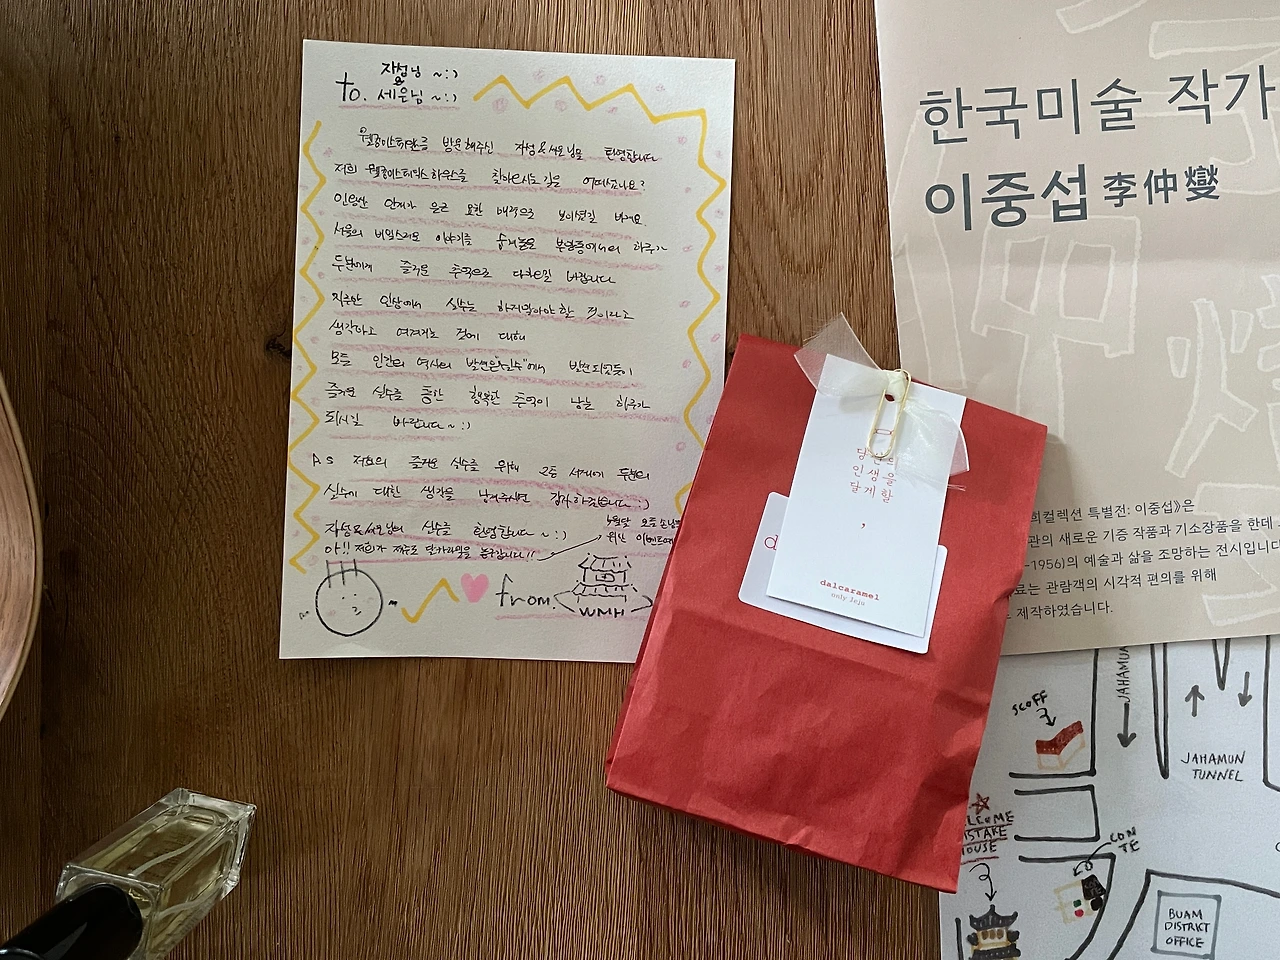 to. 자성님 ~:)
&
세은님 ~:)
웰컴미스테이크를 방문해주신 자성&세은님을 환영합니다
저희 웰컴미스테이크하우스를 찾아오시는 길은 어떠셨나요?
인왕산 언저리가 품은 포근한 배경으로
서울의 비밀스러운 이야기를 숨겨놓은 부암동에서의 하루가
두분에게 즐거운 추억으로 다가오길 바랍니다
인상에서 실수는 하지말아야 할 것이라고
생각하고 여겨지는 것에 대해
모든 인간의 역사의 발전은 "실수"에서 발전되었듯이
즐거운 실수를 통한 행복한 추억이 남는 하루가
되시길 바랍니다 ~ :)
P.S 저희의 즐거운 실수를 위해 2층 서재에 두분의
실수에 대한 생각을 남겨주시면 감사하겠습니다 :)
자성&세은님의 실수를 환영합니다 ~ :)
아!! 저희가 제주도 달카라멜을 놓구갑니다!!
4월달 오픈 손님
위한 이벤트
from.
WMH
당신의
인생을
달게 할
,
dalcaramel
only Jeju
d
한국미술 작가
이중섭 李仲燮
희컬렉션 특별전: 이중섭》은
관의 새로운 기증 작품과 기소장품을 한데
-1956)의 예술과 삶을 조망하는 전시입니다
료는 관람객의 시각적 편의를 위해
제작하였습니다.
JAHAMUN
SCOFF
JAHAMUN
TUNNEL
LCOME
ISTAKE
HOUSE
CON
TE
BUAM
DISTRICT
OFFICE